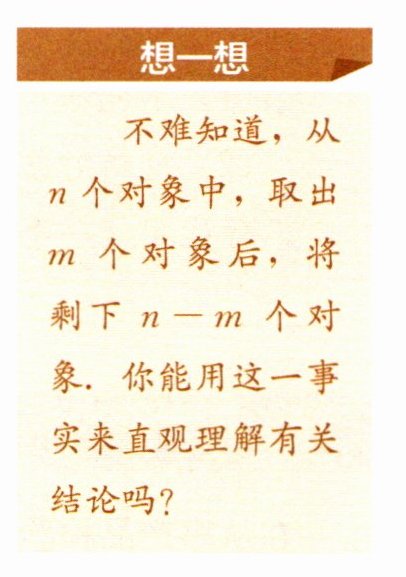 想一想
不难知道，从
n 个对象中，取出
m 个对象后，将
剩下 n－m 个对
象．你能用这一事
实来直观理解有关
结论吗？